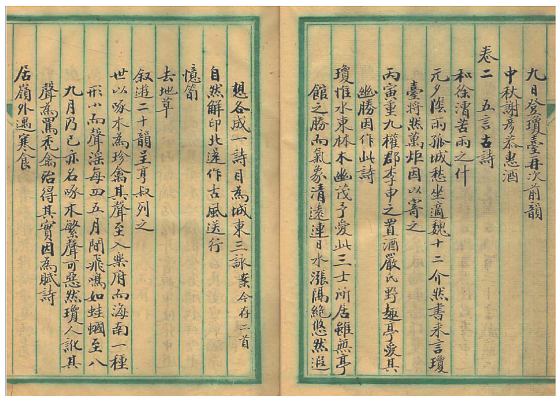 九日登瓊臺再次前韻
中秋謝彦恭惠酒
卷二 五言古詩
和徐清苦雨之什
元夕陰雨孤城愁坐適魏十二介然書來言瓊
臺將然萬炬因以寄之
丙寅重九權郡李申之置酒嚴氏野趣亭愛其
幽勝因作此詩
瓊惟水東林木幽茂予愛此三士所居雖無亭
館之勝而氣象清遠連日水漲隔絶悠然遐
想各成一詩目為城東三詠 案今存二首
自然解印北遷作古風送行
憶筍
去地草
叙遊二十韻呈耳叔列之
世以啄木為珍禽其聲至入樂府而海南一種
形小而聲淫每四五月間飛鳴如蛙蟈至八
九月乃已亦名啄木繁聲可惡然瓊人訛其
聲為罵禿禽治得其實因為賦詩
居嶺外遇寒食